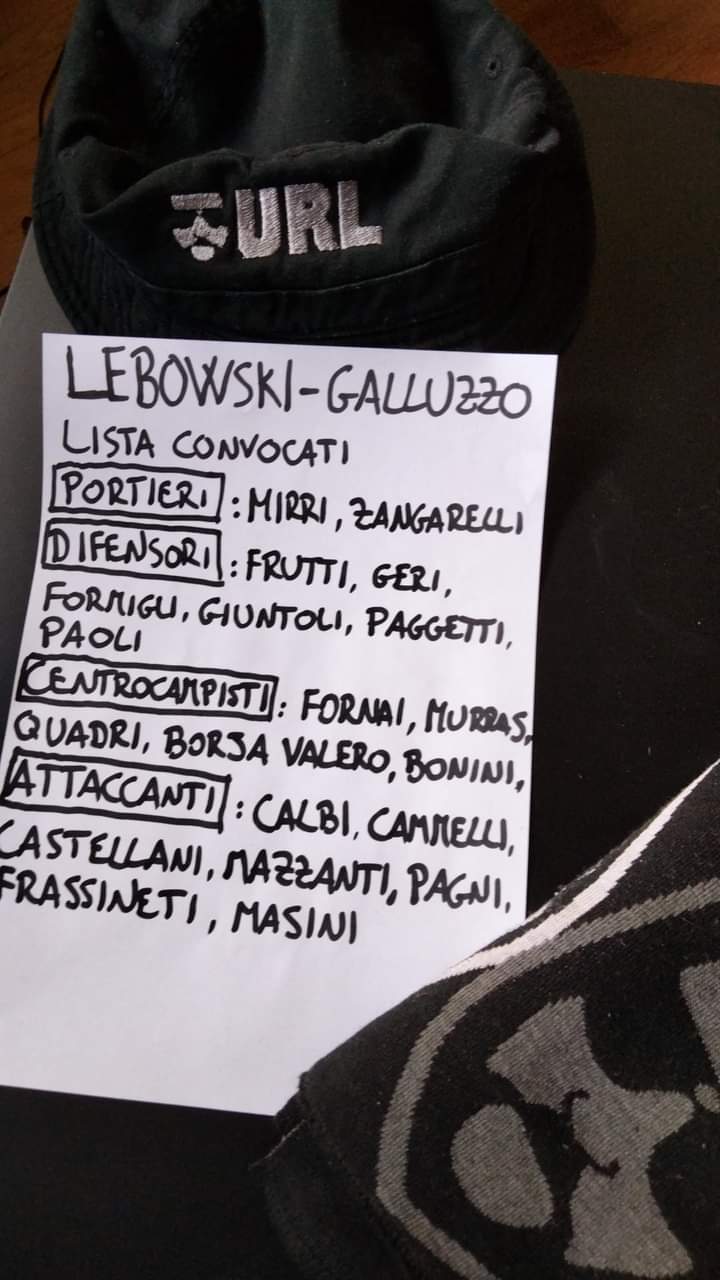 URL
LEBOWSKI-GALLUZZO
LISTA CONVOCATI
PORTIERI: MIRRI, ZANGARELLI
DIFENSORI: FRUTTI, GERI,
FORMIGLI, GIUNTOLI, PAGGETTI,
PAOLI
CENTROCAMPISTI: FORNAI, MURRAS,
QUADRI, BORJA VALERO, BONINI,
ATTACCANTI: CALBI, CAMMELLI,
CASTELLANI, MAZZANTI, PAGNI,
FRASSINETI, MASINI